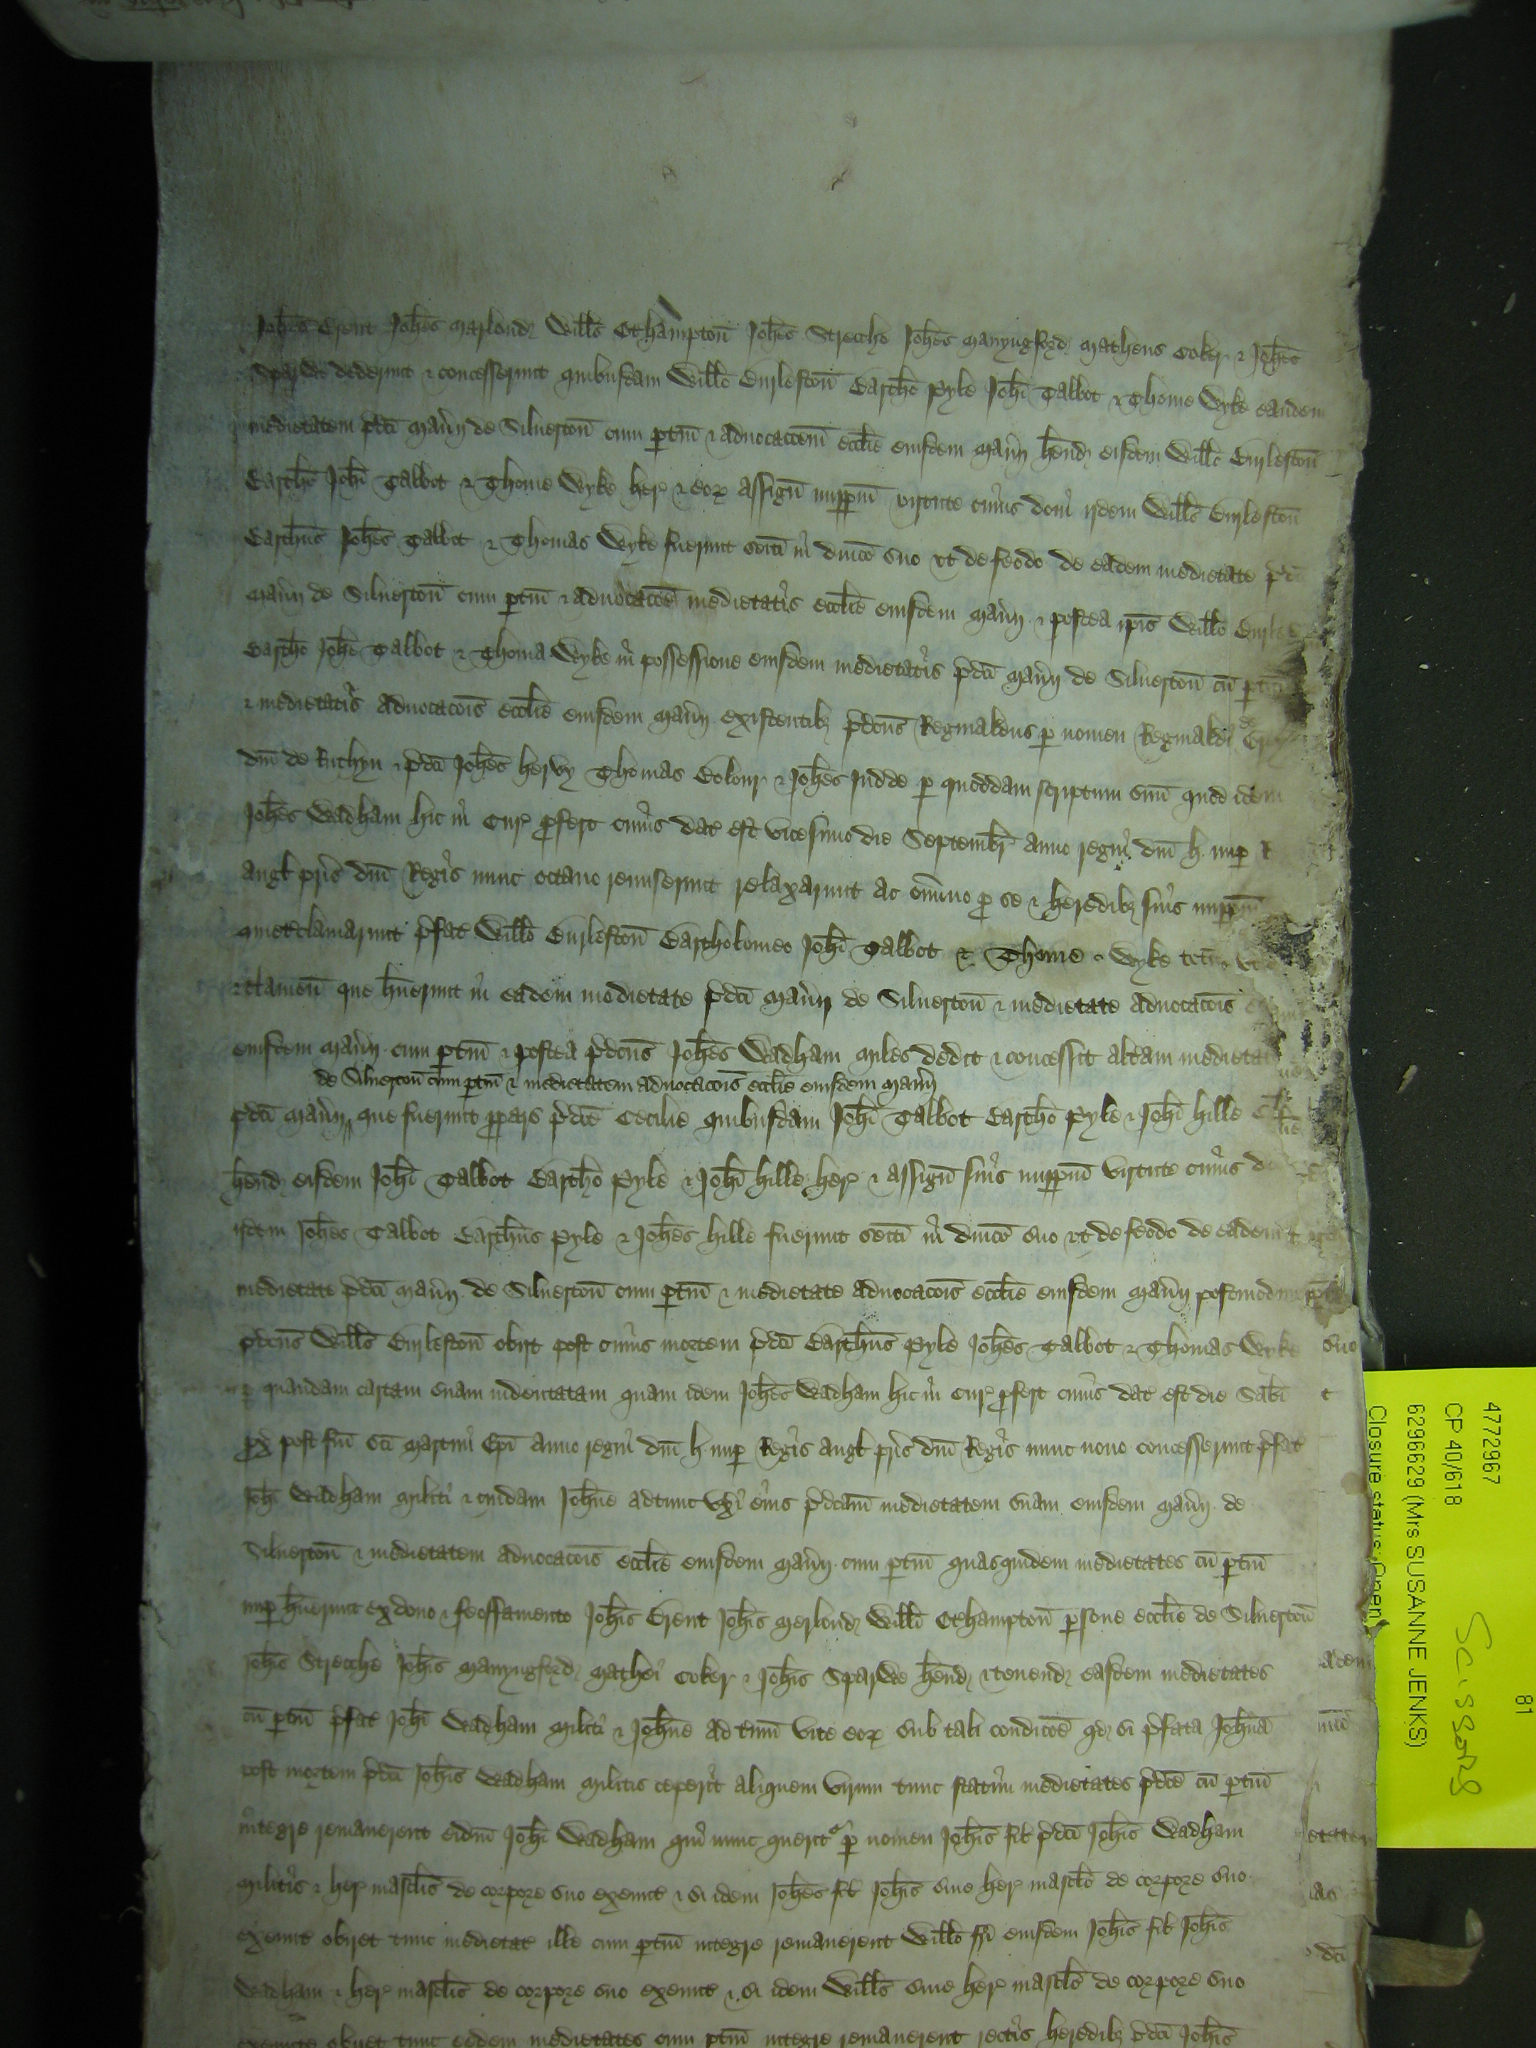 Joħes Brent Joħes Marlond Wills Othampton Joħes Strecche Joħes Manyngford Matheus Coker & Joħes
Sparwe dederunt & concesserunt quibusdam Willo Burleston Bartho Pyle Joħi Talbot & Thome Wyke eandem
medietatem pdci Manij de Silueston cum ptin & aduocacoem ecclie eiusdem Manij hend eisdem Willo Burleston
Bartho Joħi Talbot & Thome Wyke her & eor assign imppm virtute cuius doni ijdem Wills Burleston
Barthus Joħes Talbot & Thomas Wyke fuerunt seiti in dnico suo vt de feodo de eadem medietate pdci
Manij de Silueston cum ptin & aduocacoe medietatis ecclie eiusdem Manij & postea ipis Willo
Bartho Joħe Talbot & Thoma Wyke in possessione eiusdem medietatis pdci Manij de Silueston cu ptin
& medietatis aduocacois ecclie eiusdem Manij existentib pdcus Reginaldus p nomen Reginaldi de Grey
dni de Ruthyn & pdci Joħes hervy Thomas Bolour & Joħes Judde p quoddam scriptum suu quod idem
Joħes Wadham hic in Cur pfert cuius dat est vicesimo die Septembr anno regni dni h nup R
Angl pris dni Regis nunc octauo remiserunt relaxarunt ac omnino p se & heredib suis imppm
quietclamarunt pfat Willo Burleston Bartholomeo Joħi Talbot & Thome Wyke totu
& clameu que huerunt in eadem medietate pdci Manij de Silueston & medietate aduocacois
eiusdem Manij cum ptin & postea pdcus Joħes Wadham Miles dedit & concessit altam medietat
de Silueston cum ptin & medietatem aduocacois ecclie eiusdem Manij
pdci Manij que fuerunt ppars pdce Cecilie quibusdam Joħi Talbot Bartho Pyle & Joħi hille
hend eisdem Joħi Talbot Bartho Pyle & Joħi hille her & assign suis imppm virtute cuius
ijdem Joħes Talbot Barthus Pyle & Joħes hille fuerunt seiti in dnico suo vt de feodo de eadem
medietate pdci Manij de Silueston cum ptin & medietate aduocacois ecclie eiusdem Manij postmodum
pdcus Wills Burleston obijt post cuius mortem pdci Barthus Pyle Joħes Talbot & Thomas Wyke
p quandam cartam suam indentatam quam idem Joħes Wadham hic in Cur pfert cuius dat est die Sabi
px post fm sci Martini Epi anno regni dni h nup Regis Angl pris dni Regis nunc nono concesserunt pfat
Joħi Wadham Militi & cuidam Joħne adtunc vxi eius pdcam medietatem suam eiusdem Manij de
Silueston & medietatem aduocacois ecclie eiusdem Manij cum ptin quasquidem medietates cu ptin
nup huerunt ex dono & feoffamento Joħis Brent Joħis Merlond Willi Othampton psone ecclie de Silueston
Joħis Strecche Joħis Manyngford Mathei Coker & Joħis Sparwe hend & tenend easdem medietates
cu ptin pfat Joħi Wadham Militi & Joħne ad tmm vite eor sub tali condicoe qd si pfata Joħna
post mortem pdci Joħis Wadham Militis ceperit aliquem virum tunc statim medietates pdce cu ptin
integre remanerent eidm Joħi Wadham qui nunc querit p nomen Joħis fil pdci Joħis Wadham
Militis & her masclis de corpore suo exeunt & si idem Joħes fil Joħis sine her masclo de corpore suo
exeunte obiret tunc medietat ille cum ptin integre remanerent Willo fri eiusdem Joħis fil Joħis
Wadham & her masclis de corpore suo exeunt & si idem Wills sine her masclo de corpore suo
exeunte obiret tunc eedem medietates cum ptin integre remanerent rectis heredib pdci Joħis
81
4772967
CP 40/618
6296629 (Mrs SUSANNE JENKS)
Closure status: Open
Scissors